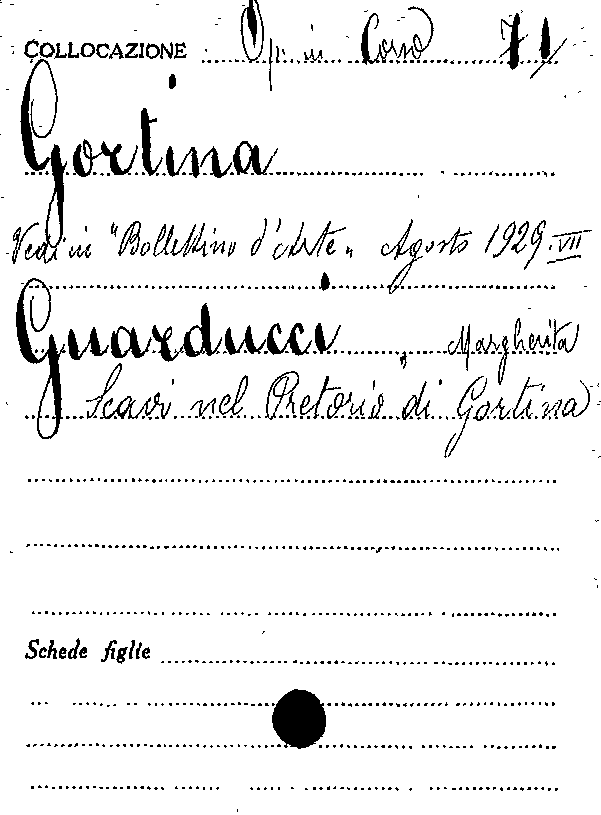 COLLOCAZIONE Op. in Corso 71
Gortina
Vedi in "Bollettino d'Arte" Agosto 1929. VII
Guarducci, Margherita
Scavi nel Pretorio di Gortina
Schede figlie